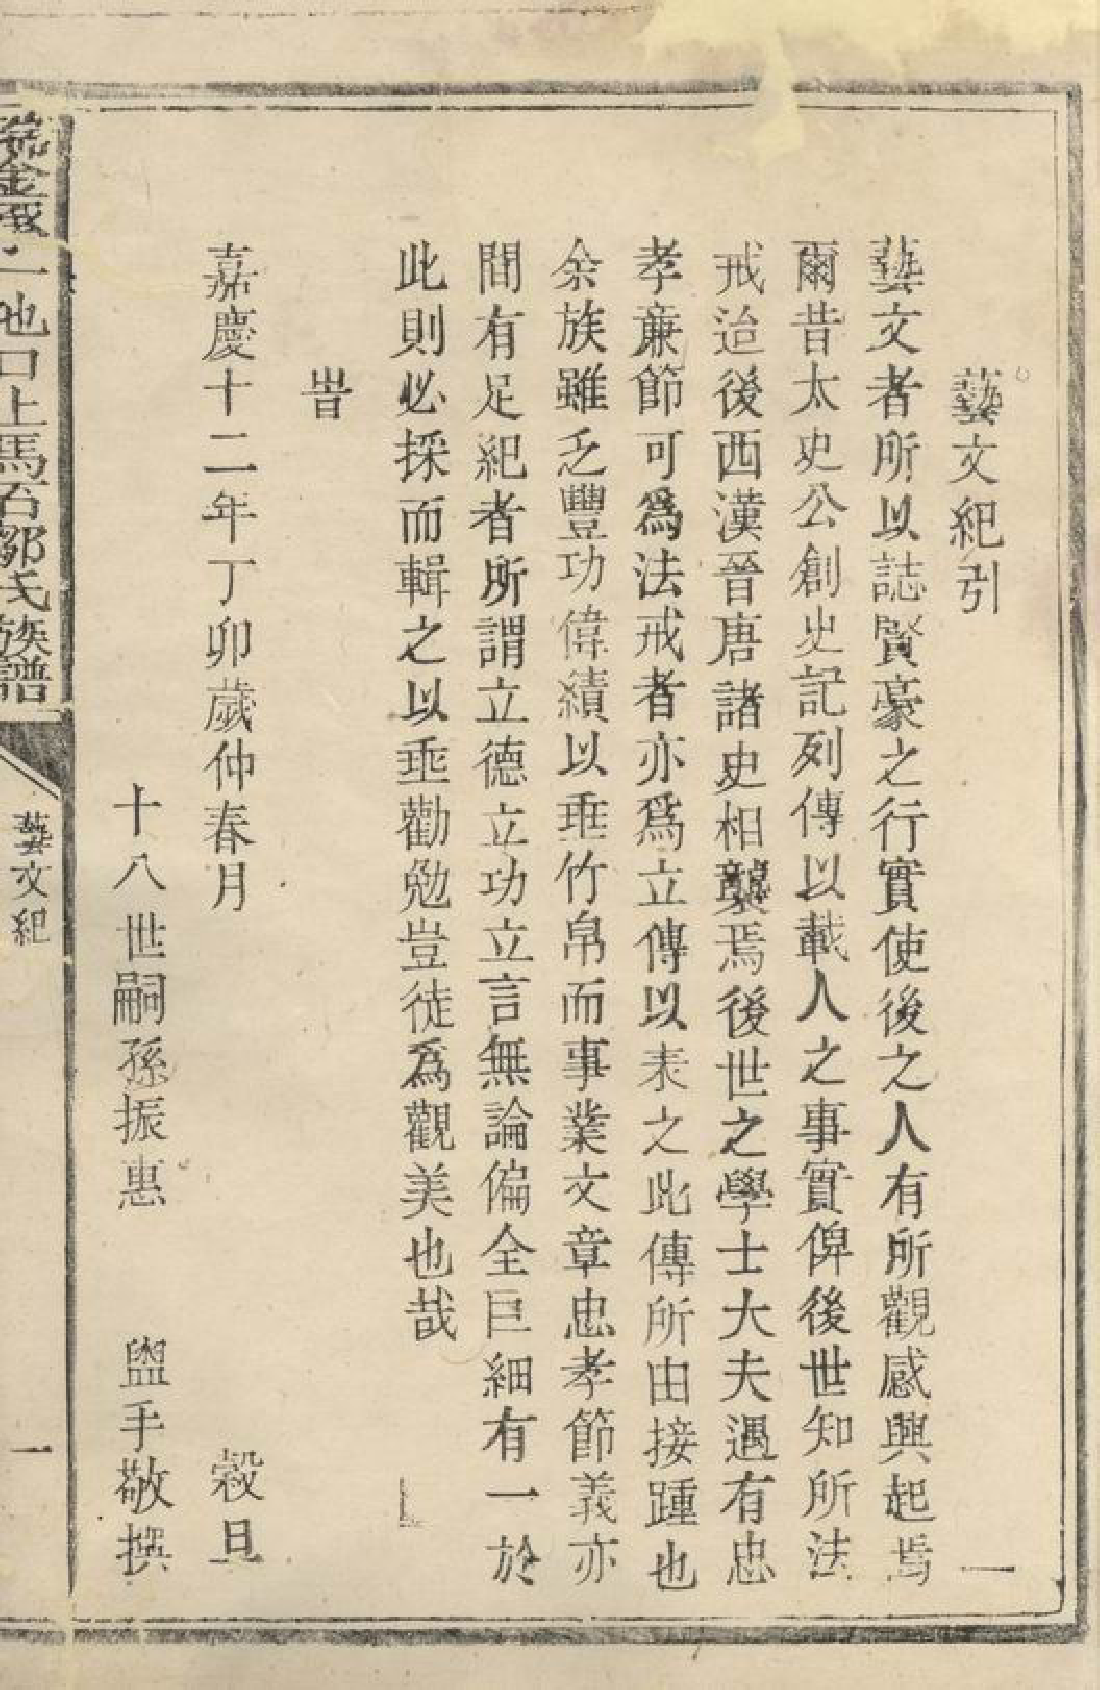 藝文紀引　一
藝文者所以誌賢豪之行實使後之人有所觀感興起焉
爾昔太史公創史記列傳以載人之事實俾後世知所法
戒迨後西漢晉唐諸史相襲焉後世之學士大夫遇有忠
孝亷節可爲法戒者亦爲立傳以表之此傳所由接踵也
余族雖乏豐功偉績以垂竹帛而事業文章忠孝節義亦
間有足紀者所謂立德立功立言無論偏全巨細有一於
此則必採而輯之以垂勸勉豈徒爲觀美也哉
旹
嘉慶十二年丁卯歲仲春月　穀旦
十八世嗣孫振惠　盥手敬撰
池口上馬石鄒氏族譜
藝文紀
一